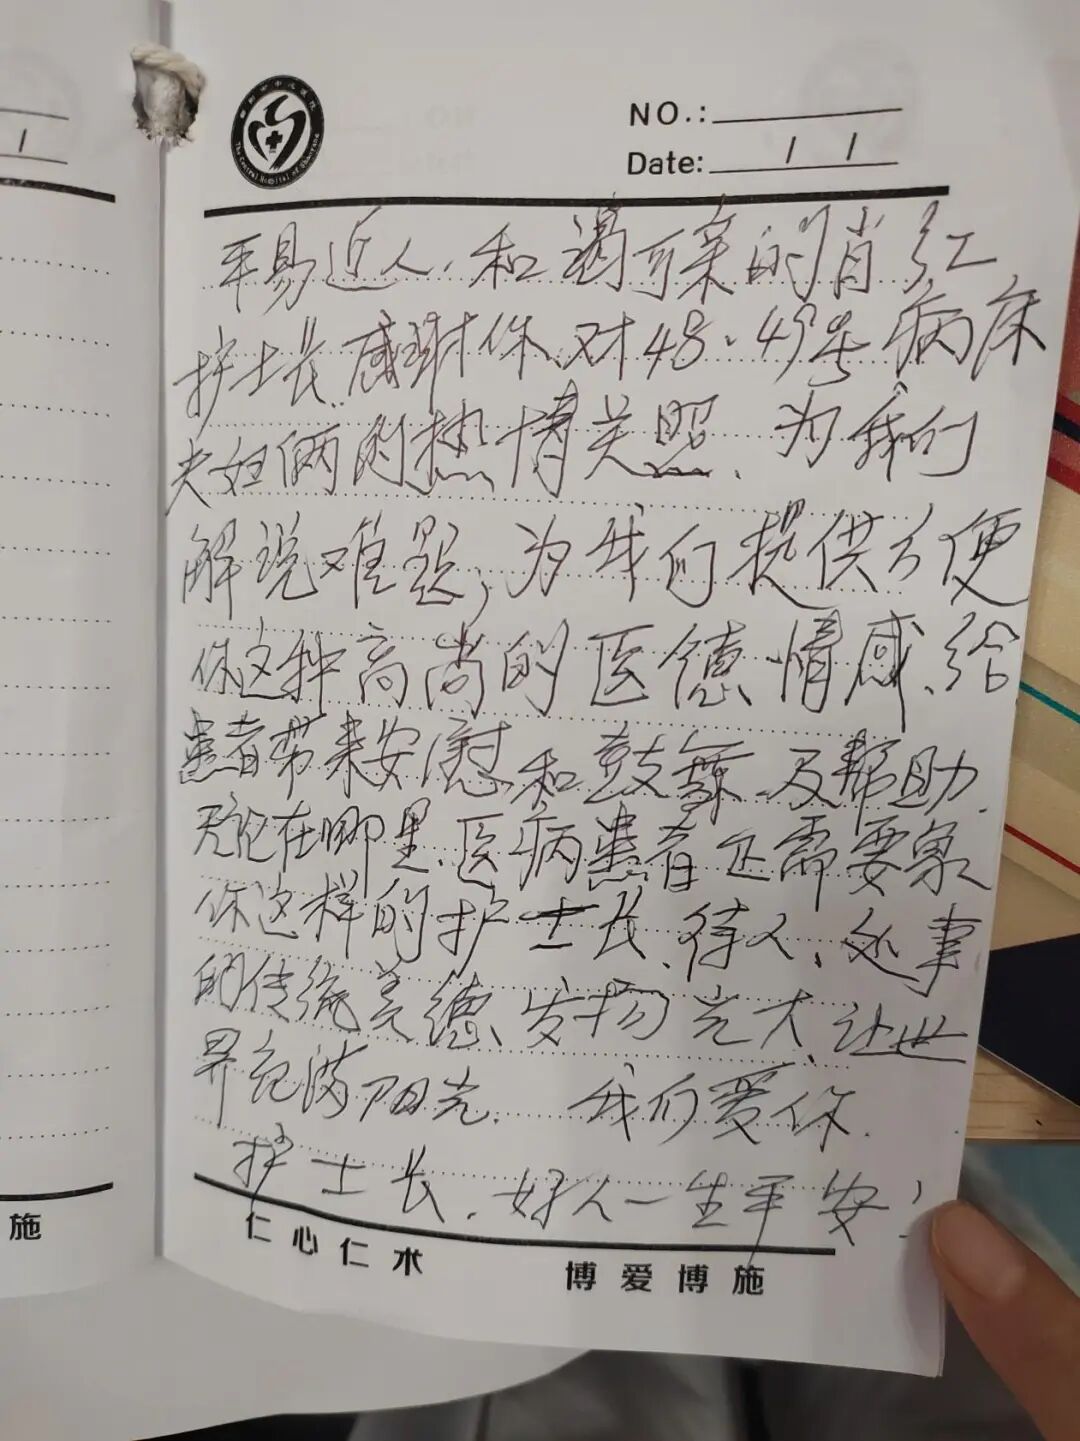 NO.:
Date: / /
平易近人、和蔼可亲的肖红
护士长、感谢你、对48、49号病床
夫妇俩的热情关照、为我们
解说难题，为我们提供方便
你这种高尚的医德、情感、给
患者带来安慰和鼓舞、及帮助、
无论在哪里、医病患者正需要象
你这样的护士长、待人、处事
的传统美德、发扬光大、让世
界充满阳光、我们爱你.
护士长、好人一生平安！
仁心仁术 博爱博施
施